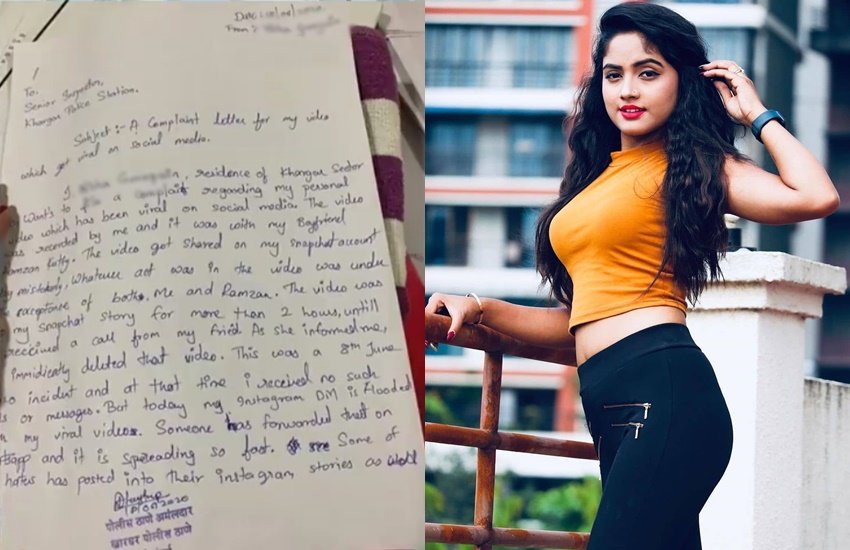 Date:
From :-
To,
Senior
Kharghar Police Station.
Subject :- A Complaint letter for my video
which got viral on social media.
I, residence of Kharghar Sector
Wants to a complaint regarding my personal
video which has been viral on social media. The video
was recorded by me and it was with my Boyfriend
Ramzan. The video got shared on my snapchat account
by mistakenly. Whatever act was in the video was under
acceptance of both. Me and Ramzan. The video was
my snapchat story for more than 2 hours, untill
received a call from my friend. As she informed me,
immidietly deleted that video. This was a 8th June
incident and at that time i received no such
or messages. But today my Instagram DM is flooded
my viral videos. Someone has forwarded that on
and it is spreading so fast. Some of
has posted into their instagram stories as well
पोलीस ठाणे अंमलदार
खारघर पोलीस ठाणे